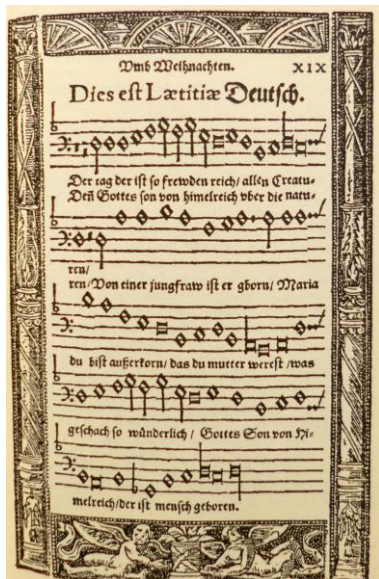 Vmb Weihnachten. XIX
Dies est Lætitiæ Deutsch.
Der tag der ist so frewden reich/ allen Creatu-
Deñ Gottes son von himelreich vber die natu-
ren/
ren/Von einer jungfraw ist er gborn/ Maria
du bist außerkorn/ das du mutter werest /was
geschach so wünderlich/ Gottes Son von Hi-
melreich/der ist mensch geboren.